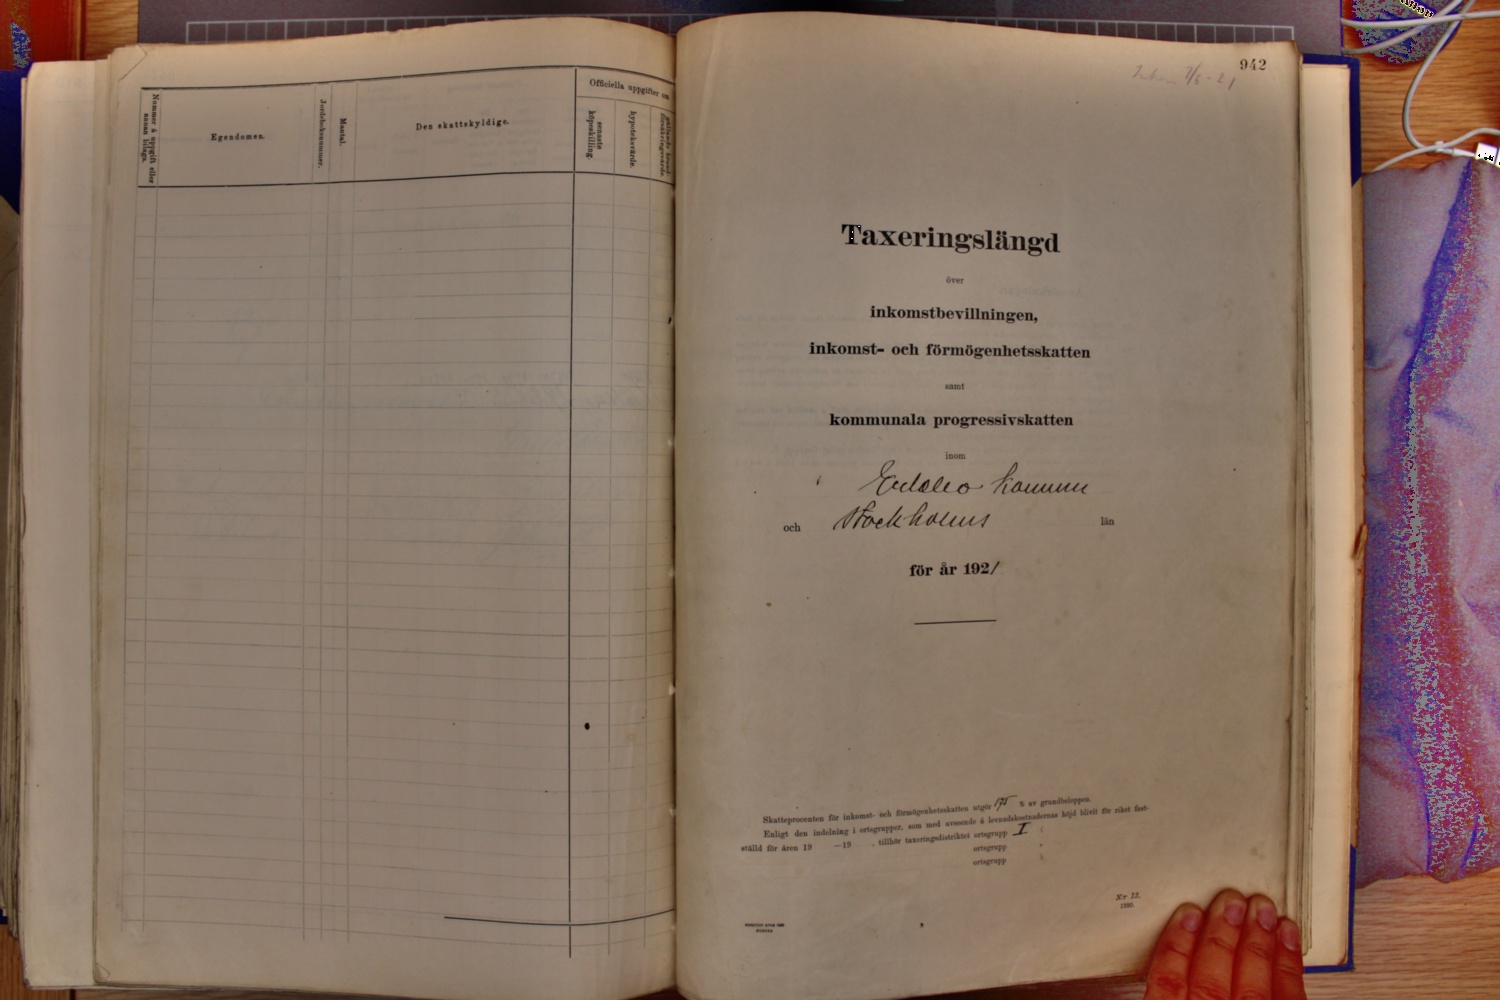 Nummer å uppgift eller
annan bilaga.
Egendomen.
Jordeboksnummer.
Mantal.
Den skattskyldige.
Officiella uppgifter om
senaste
köpeskilling.
hypoteksvärde.
gällande brand-
försäkringsvärde.
942
7/6-21
Taxeringslängd
över
inkomstbevillningen,
inkomst- och förmögenhetsskatten
samt
kommunala progressivskatten
inom
kommun
och Stockholms län
för år 1921
Skatteprocenten för inkomst- och förmögenhetsskatten utgör 175 % av grundbeloppen.
Enligt den indelning i ortsgrupper, som med avseende å levnadskostnadernas höjd blivit för riket fast-
ställd för åren 19 —19 , tillhör taxeringsdistriktet ortsgrupp I
ortsgrupp
ortsgrupp
N:r 12.
1920.